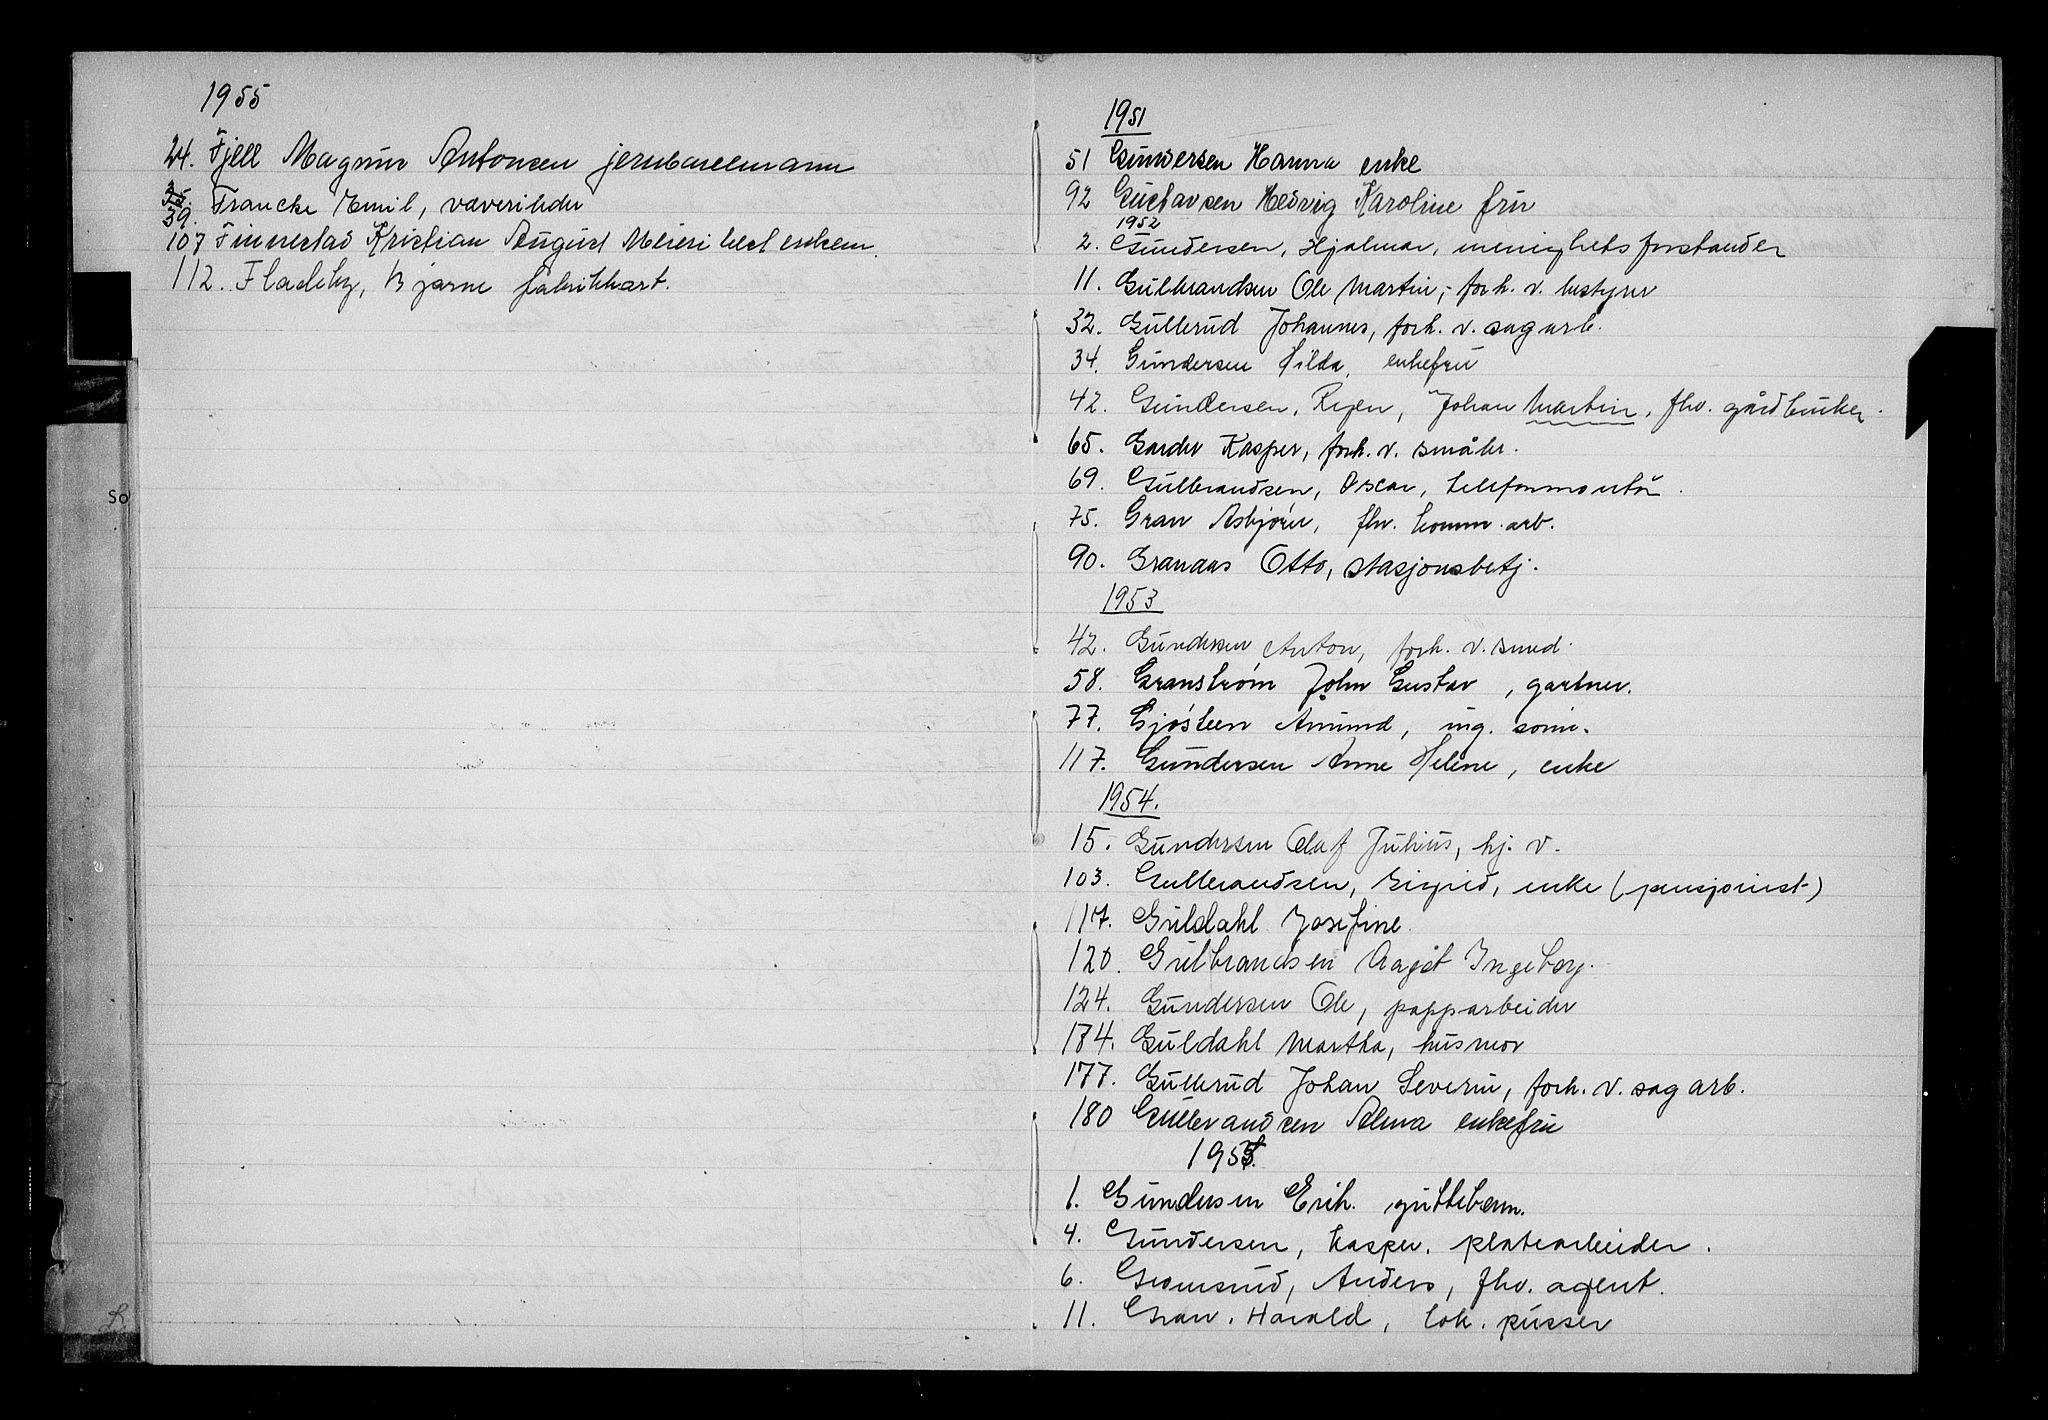 1955
24. Fjell Magnus Antonsen jernbanemann
39. Francke Emil, væverileder
107 Finnestad Kristian August Meieribest enkem.
112. Fladeby, Bjarne fabrikkarb.
So
1951
51 Gundersen Hanna enke
92 Gustavsen Hedvig Karoline fru
1952
2. Gundersen, Hjalmar, menighetsforstander
11. Gulbrandsen Ole Martin, forh. v. bestyrer
32. Gullerud Johannes, forh. v. sagarb.
34. Gundersen Hilda, enkefru
42. Gundersen, Rygen, Johan Martin, fhv. gårdbruker.
65. Garder Kasper, forh. v. småbr.
69. Gulbrandsen, Oscar, telefonmontør.
75. Gran Asbjørn, fhv. komm. arb.
90. Granaas Otto, stasjonsbetj.
1953
42. Gundersen Anton, forh. v. smed.
58. Granstrøm John Gustav, gartner.
77. Gjøsteen Amund, ing.
117. Gundersen Anne Helene, enke
1954.
15. Gundersen Olaf Julius, hj. v.
103. Gulbrandsen, Sigrid, enke (pensjonist)
117. Guldahl Josefine
120. Gulbrandsen Aagot Ingeborg.
124. Gundersen Ole, papparbeider
174. Guldahl Martha, husmor
177. Gullerud Johan Severin, forh. v. sagarb.
180 Gulbrandsen Alma enkefru
1955.
1. Gundersen Erik. guttebarn.
4. Gundersen, Kasper. platearbeider.
6. Gromsrud, Anders, fhv. agent.
11. Gran, Harald, lok. pusser